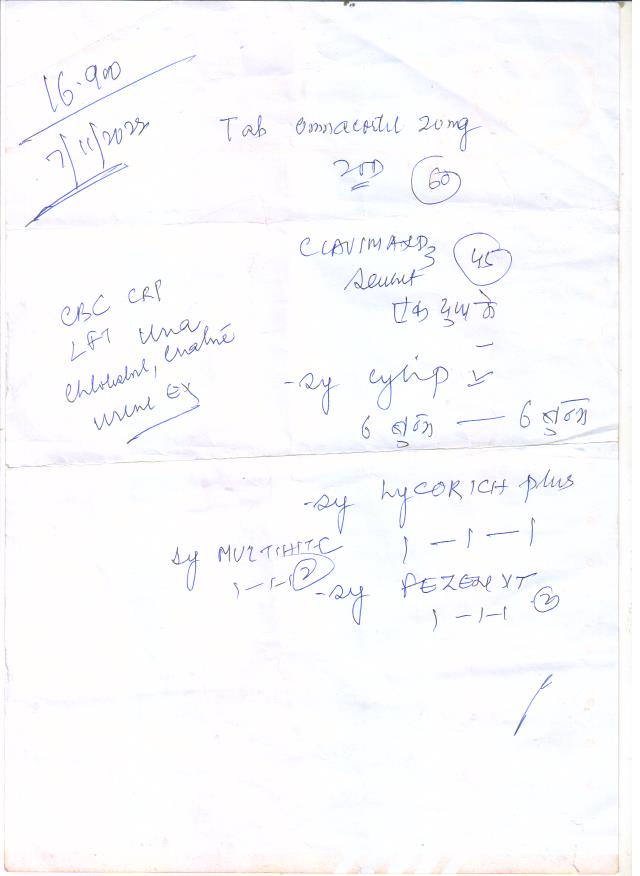 16.900
7/11/2022
Tab omnacortil 20mg
20D 60
CLAVIMAXD3 45
एक सुबह
CBC CRP
LFT Urea
Cholesterol, Creatine
Urine Ex
-sy
6 — 6
-sy LyCORICH plus
1 - 1 - 1
sy MULTIHITC
1 - 1 - 1 2
-sy XT
1 - 1 - 1 2